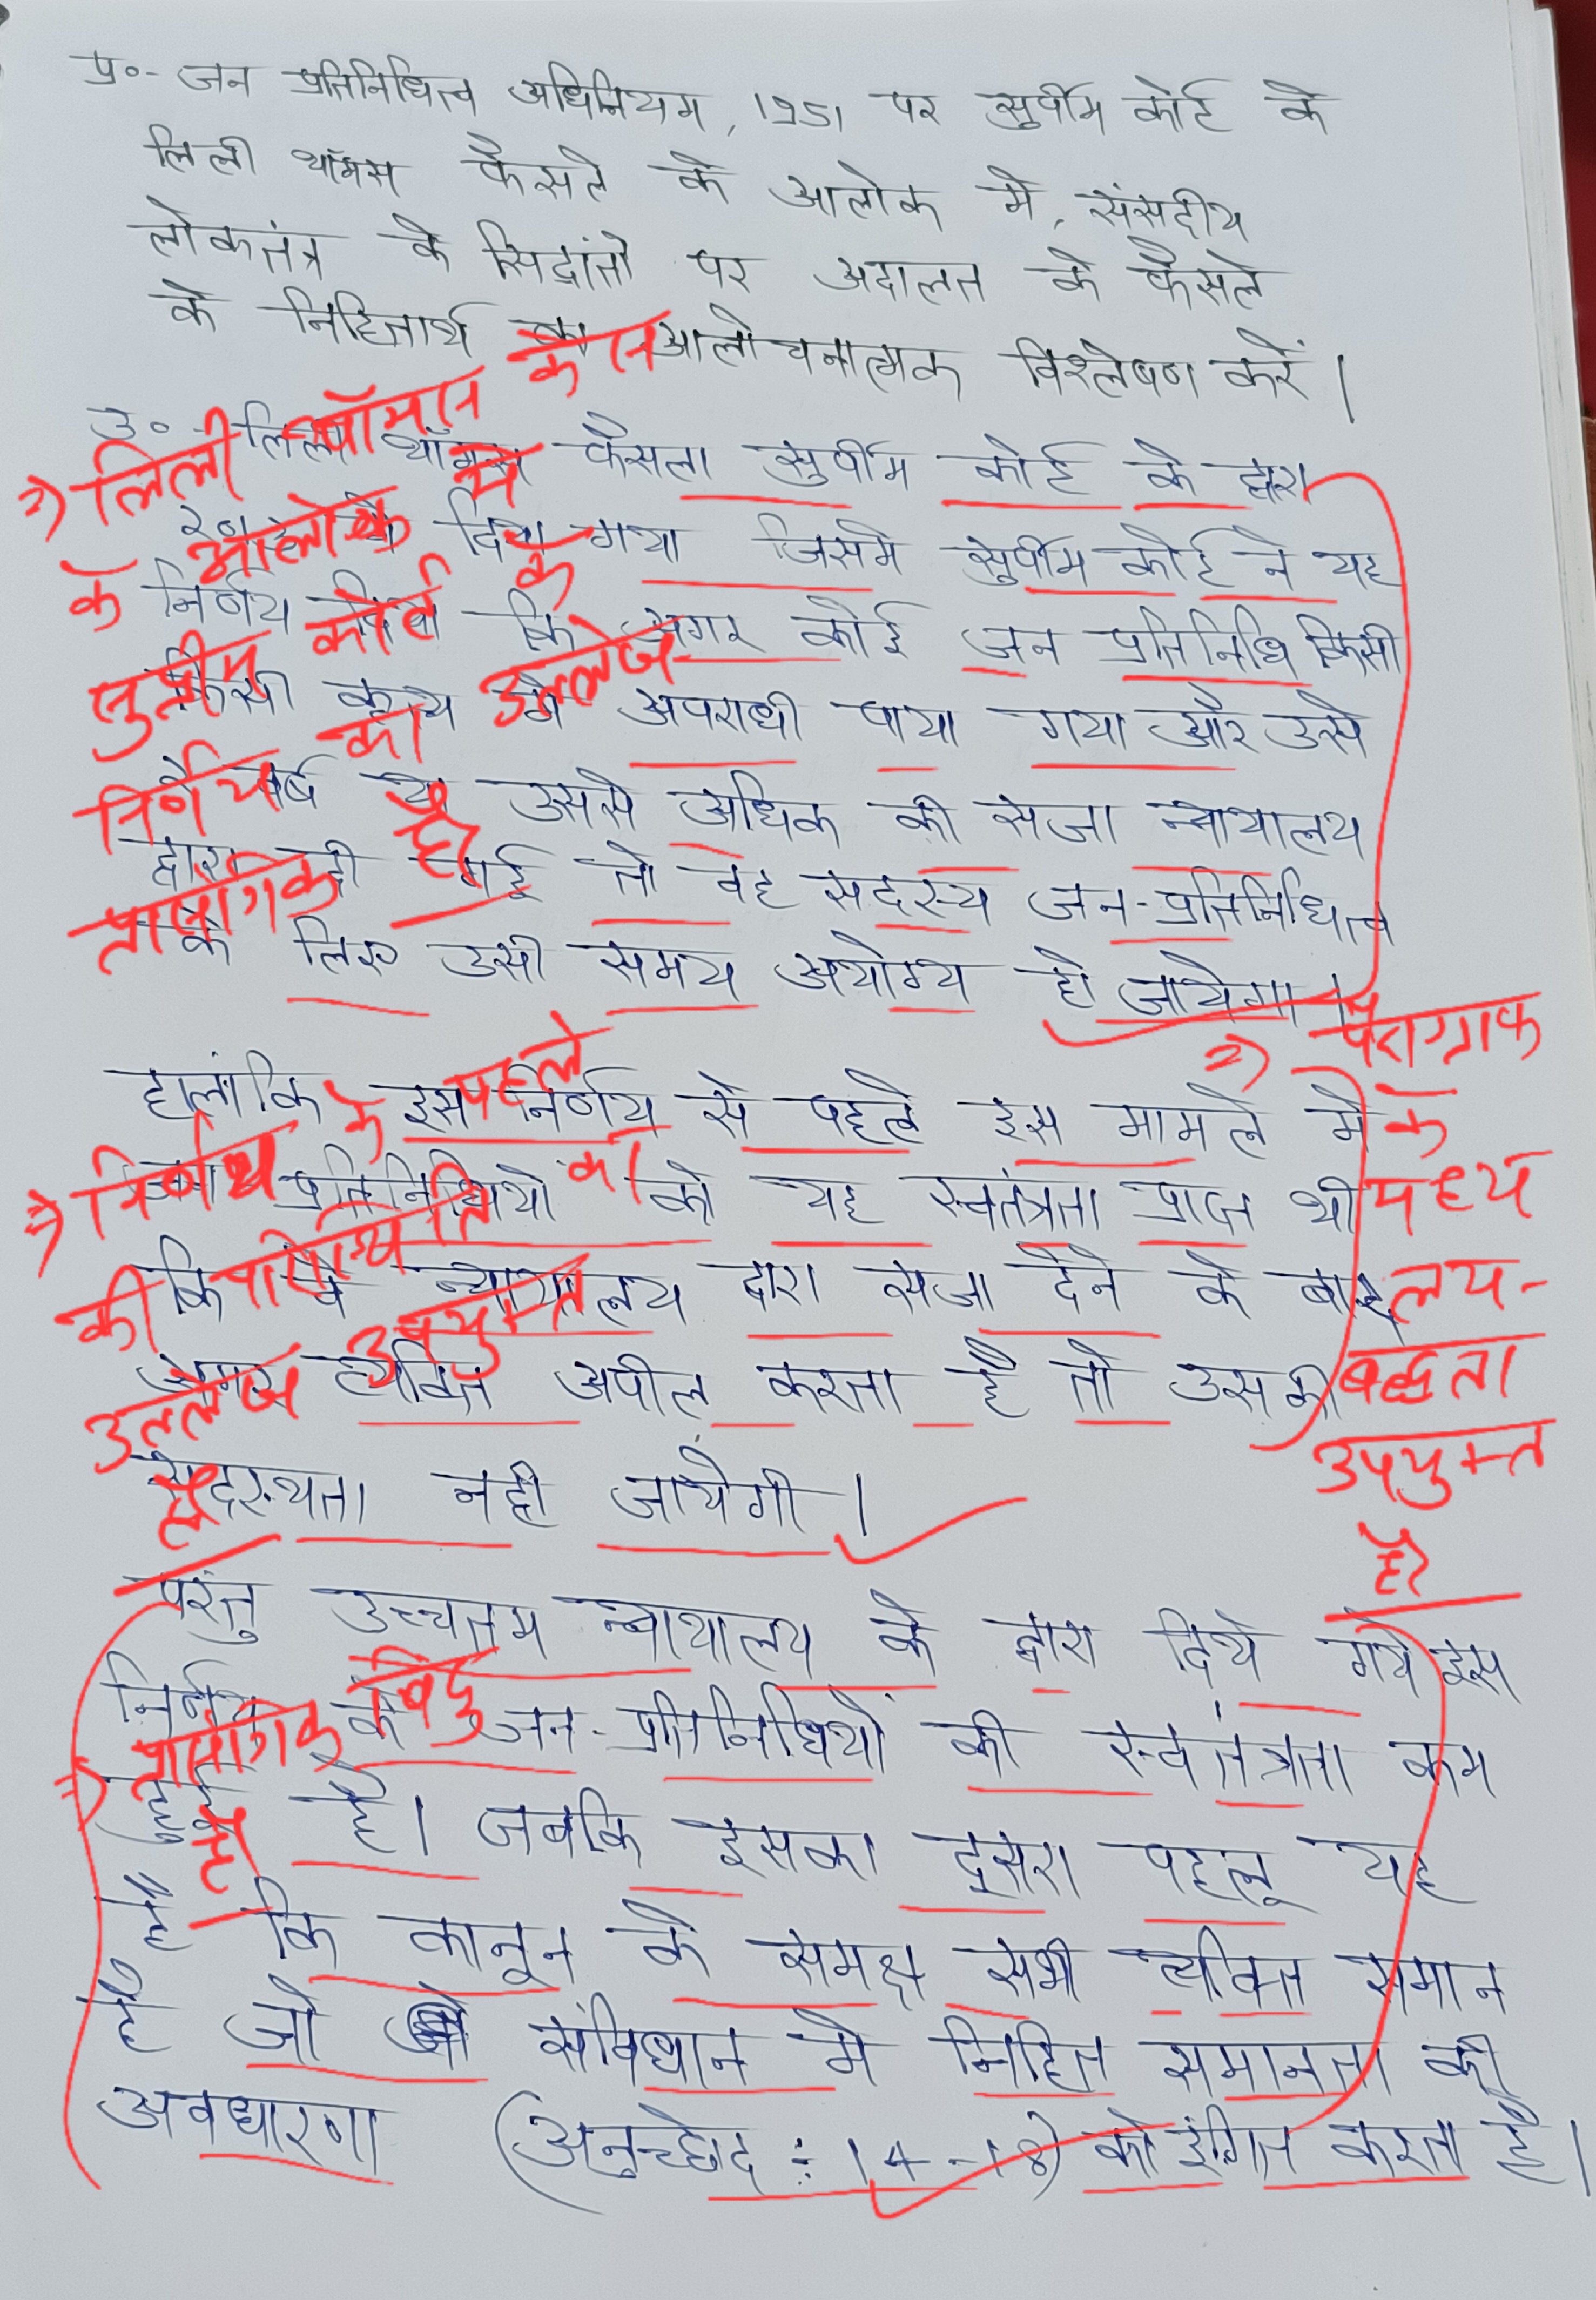 प्र०- जन प्रतिनिधित्व अधिनियम, 1951 पर सुप्रीम कोर्ट के
लिली थॉमस फैसले के आलोक मे, संसदीय
लोकतंत्र के सिद्धांतो पर अदालत के फैसले
के निहितार्थ का आलोचनात्मक विश्लेषण करें।
उ०- लिली थॉमस फैसला सुप्रीम कोर्ट के द्वारा
दिया गया जिसमे सुप्रीम कोर्ट ने यह
निर्णय दिया कि अगर कोई जन प्रतिनिधि किसी
कृत्य मे अपराधी पाया गया और उसे
वर्ष या उससे अधिक की सजा न्यायालय
द्वारा दी गई तो वह सदस्य जन-प्रतिनिधित्व
के लिए उसी समय अयोग्य हो जायेगा।
⇒ लिली थॉमस केस
के आलोक में
सुप्रीम कोर्ट के
निर्णय का उल्लेख
प्रासंगिक है
हालांकि इस निर्णय से पहले इस मामले मे
जन प्रतिनिधियो को यह स्वतंत्रता प्राप्त थी
कि वे न्यायालय द्वारा सजा देने के बाद
अगर व्यक्ति अपील करता है तो उसकी
सदस्यता नही जायेगी।
⇒ निर्णय के पहले
की परिस्थिति का
उल्लेख उपयुक्त
है
⇒ पैराग्राफ
के
मध्य
लय-
बद्धता
उपयुक्त
है
परंतु उच्चतम न्यायालय के द्वारा दिये गये इस
निर्णय के जन-प्रतिनिधियों की स्वतंत्रता कम
हुई है। जबकि इसका दूसरा पहलू यह
है कि कानून के समक्ष सभी व्यक्ति समान
है जो संविधान मे निहित समानता की
अवधारणा (अनुच्छेद ÷ 14-18) को इंगित करता है।
⇒ प्रासंगिक बिंदु
है